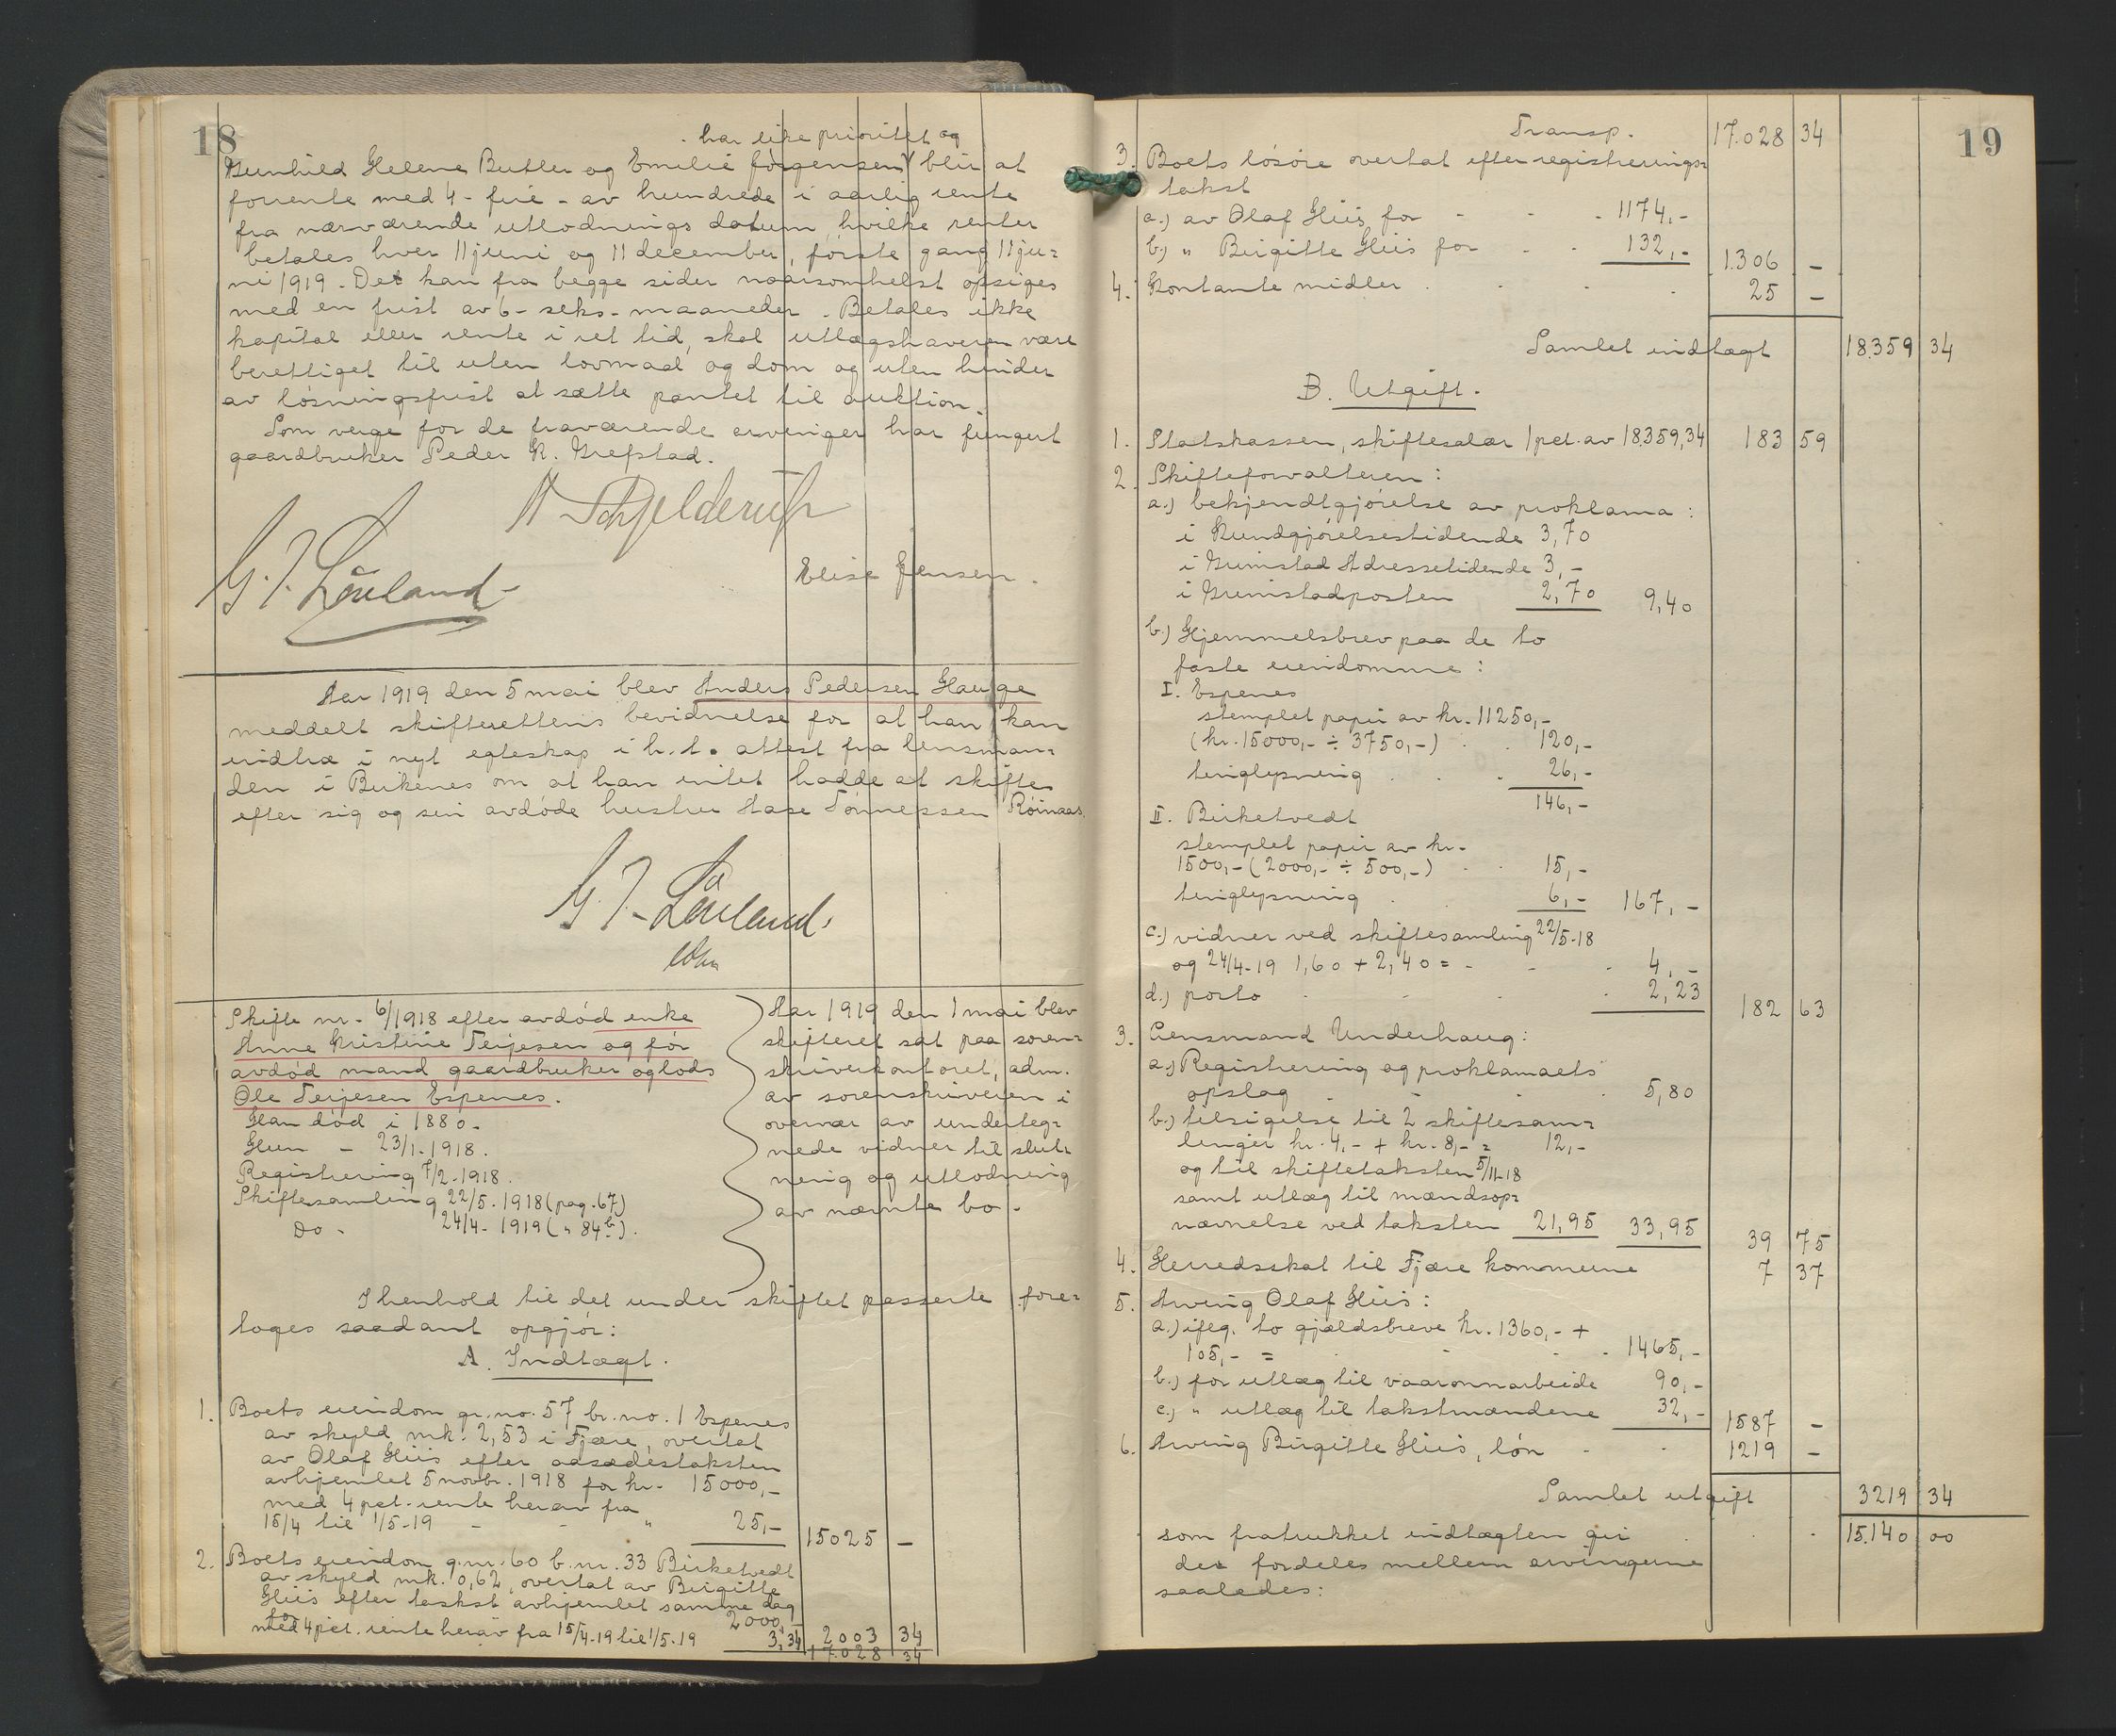 18
har like prioritet og
Gunhild Helene Butler og Emilie Jørgensen blir at
forrente med 4 - fire - av hundrede i aarlig rente
fra nærværende utlodnings datum, hvilke renter
betales hver 11 juni og 11 december, første gang 11 ju=
ni 1919. Det kan fra begge sider naarsomhelst opsiges
med en frist av 6 - seks - maaneder. Betales ikke
kapital eller rente i ret tid, skal utlægshaveren være
berettiget til uten lovmaal og dom og uten hinder
av løsningsfrist at sætte pantet til auktion.
Som verge for de fraværende arvinger har fungert
gaardbruker Peder K. Grefstad.
H Schjelderup
G. T. Løuland
Elise Jensen.
Aar 1919 den 5 mai blev Anders Pedersen Hauge
meddelt skifterettens bevidnelse for at han kan
indtræ i nyt egteskap i h. t. attest fra lensman=
den i Birkenes om at han intet hadde at skifte
efter sig og sin avdøde hustru Aase Tønnessen Röinaas.
G. T. Løuland.
Skifte nr. 6/1918 efter avdød enke
Anne Kristine Terjesen og før
avdød mand gaardbruker og lods
Ole Terjesen Espenes.
Han död i 1880.
Hun - 23/1. 1918.
Registrering 7/2. 1918.
Skiftesamling 22/5. 1918 (pag. 67)
Do - 24/4. 1919 (" 84b).
Aar 1919 den 1 mai blev
skifteret sat paa soren=
skriverkontoret, adm.
av sorenskriveren i
overvær av underteg=
nede vidner til slut=
ning og utlodning
av nævnte bo.
I henhold til det under skiftet passerte fore=
toges saadant opgjør:
A. Indtægt.
1. Boets eiendom gr. no. 57 br. no. 1 Espenes
av skyld mk. 2,53 i Fjære, overtat
av Olaf Hiis efter aasædestaksten
avhjemlet 5 novbr. 1918 for kr. 15000,-
med 4 pct. rente herav fra
15/4 til 1/5-19 - - " 25,- 15025 -
2. Boets eiendom g. nr. 60 b. nr. 33 Birketvedt
av skyld mk. 0,62, overtat av Birgitte
Hiis efter takst avhjemlet samme dag
for 2000,-
med 4 pct. rente herav fra 15/4-19 til 1/5-19 3,34 2003 34
17.028 34
19
Transp. 17.028 34
3. Boets løsøre overtat efter registrerings=
takst
a.) av Olaf Hiis for - - - 1174,-
b.) " Birgitte Hiis for - - 132,- 1.306 -
4. Kontante midler . . . . 25 -
Samlet indtægt 18.359 34
B. Utgift.
1. Statskassen, skiftesalær 1 pct. av 18359,34 183 59
2. Skifteforvalteren:
a.) bekjendtgjørelse av proklama:
i Kundgjørelsestidende 3,70
i Grimstad Adressetidende 3,-
i Grimstadposten 2,70 9,40
b.) Hjemmelsbrev paa de to
faste eiendomme:
I. Espenes
stemplet papir av kr. 11250,-
(kr. 15000,- ÷ 3750,-) . . 120,-
tinglysning . . . 26,-
146,-
II. Birketvedt
stemplet papir av kr.
1500,- (2000,- ÷ 500,-) . . 15,-
tinglysning . . 6,- 167,-
c.) vidner ved skiftesamling 22/5-18
og 24/4-19 1,60 + 2,40 = - - - 4,-
d.) porto - - - 2,23 182 63
3. Lensmand Underhaug:
a.) Registrering og proklamaets
opslag - - - 5,80
b.) tilsigelse til 2 skiftesam=
linger kr. 4,- + kr. 8,- = 12,-
og til skiftetaksten 5/11-18
samt utlæg til mændsop=
nævnelse ved taksten 21,95 33,95 39 75
4. Herredsskat til Fjære kommune 7 37
5. Arving Olaf Hiis:
a.) iføg. to gjældsbreve kr. 1360,- +
105,- = - - - 1465,-
b.) for utlæg til vaaronnarbeide 90,-
c.) " utlæg til takstmændene 32,- 1587 -
6. Arving Birgitte Hiis, løn - - 1219 -
Samlet utgift 3219 34
som fratrukket indtægten gir . . 15.140 00
der fordeles mellem arvingerne
saaledes: